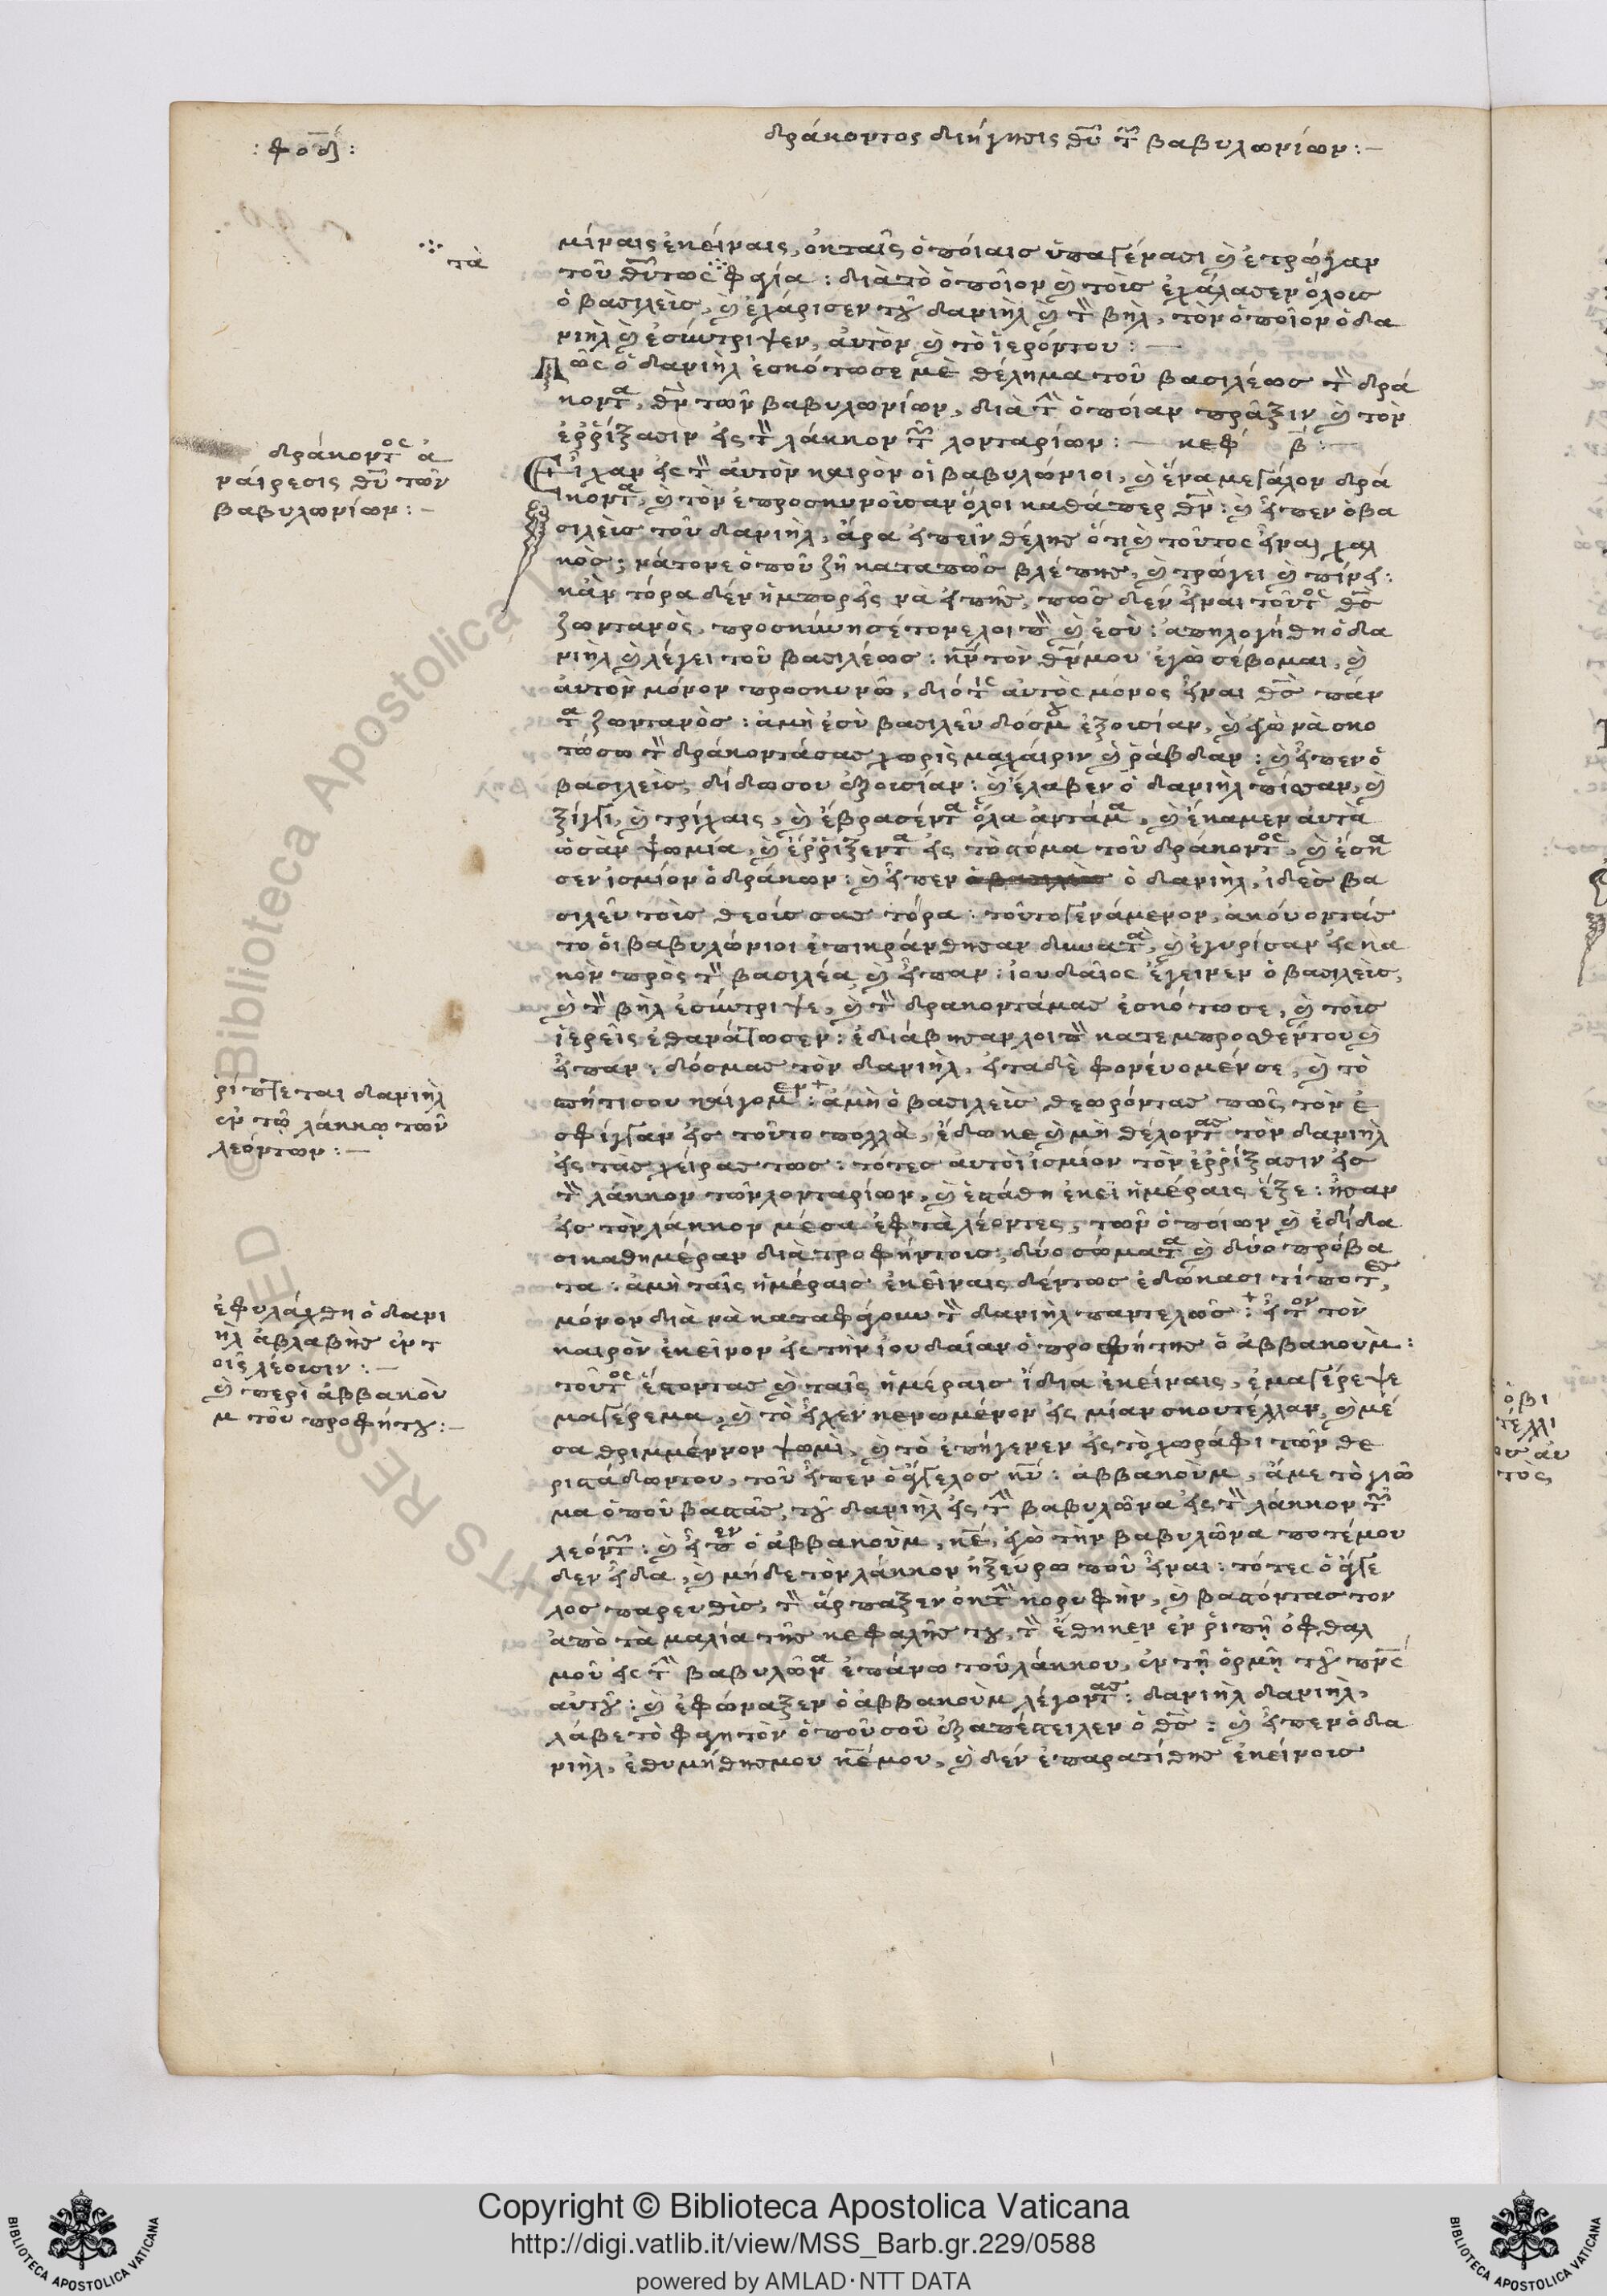 : φοδ :
δράκοντος διήγησις θῦ τῶν βαβυλωνίων : –
μίναις ἐκείναις, ὀκταῖς ὁποίαις ὑπαγένασι καὶ ἐτρώγαν
τὰ
τοῦ θῦ τως φαγία : διὰ τὸ ὁποῖον καὶ τοῖς ἐχάλασεν ὅλοις
ὁ βασιλεὺς, καὶ ἐχάρισεν τοῦ δανιὴλ καὶ τὸν βὴλ, τὸν ὁποῖον ὁ δα
νιὴλ καὶ ἐσύντριψεν, αὐτὸν καὶ τὸ ἱερόντου : –
Πῶς ὁ δανιὴλ ἐσκότωσε μὲ θέλημα τοῦ βασιλέως τὸν δρά
κοντα, θν τῶν βαβυλωνίων, διὰ τὴν ὁποίαν πρᾶξιν καὶ τὸν
ἐῤῥίξασιν εἰς τὸν λάκκον τῶν λονταρίων : – κεφ β :
δράκοντος ἀ
ναίρεσις θῦ τῶν
βαβυλωνίων : –
Εἶχαν εἰς τὸν αὐτὸν καιρὸν οἱ βαβυλώνιοι, καὶ ἕνα μεγάλον δρά
κοντα, καὶ τὸν ἐπροσκυνοῦσαν ὅλοι καθάπερ θν : καὶ εἶπεν ὁ βα
σιλεὺς τοῦ δανιὴλ, ἆρα εἰπεῖν θέλης ὅτι καὶ τοῦτος εἶναι χαλ
κὸς ; νάτονε ὁποῦ ζῆ καταπῶς βλέπης, καὶ τρώγει καὶ πίνει :
κᾂν τόρα δέν ἠμπορεῖς νὰ εἰπῆς, πῶς δέν εἶναι τοῦτος θς
ζωντανὸς, προσκύνησέ τονε λοιπὸν καὶ ἐσὺ : ἀπηλογήθη ὁ δα
νιὴλ καὶ λέγει τοῦ βασιλέως : κν τὸν θν μου ἐγὼ σέβομαι, καὶ
αὐτὸν μόνον προσκυνῶ, διότις αὐτὸς μόνος εἶναι θς πάν
τα ζωντανὸς : ἀμὴ ἐσὺ βασιλεῦ δόσμου ἐξουσίαν, καὶ ἐγὼ νὰ σκο
τώσω τὸν δράκοντάσας χωρὶς μαχαίριν καὶ ῥάβδαν : καὶ εἶπεν ὁ
βασιλεὺς, δίδωσου ἐξουσίαν : καὶ ἔλαβεν ὁ δανιὴλ πίσσαν, καὶ
ξίγγι, καὶ τρίχαις, καὶ ἔβρασέντα ὅλα ἀντάμα, καὶ ἔκαμεν αὐτὰ
ὡσὰν ψωμία, καὶ ἔῤῥιξεντα εἰς τὸ στόμα τοῦ δράκοντος, καὶ ἔσκα
σεν ἰσμίον ὁ δράκων : καὶ εἶπεν ὁ δανιὴλ, ἰδὲς βα
σιλεῦ τοὺς θεούς σας τόρα : τοῦτο γενάμενον, ἀκούοντάς
το ὁι βαβυλώνιοι ἐπικράνθησαν δυνατὰ, καὶ ἐγυρίσαν εἰς κα
κὸν πρὸς τὸν βασιλέα καὶ εἶπαν : ἰουδαῖος ἔγεινεν ὁ βασιλεὺς,
καὶ τὸν βὴλ ἐσύντριψε, καὶ τὸν δρακοντάμας ἐσκότωσε, καὶ τοὺς
ἱερεῖς ἐθανάτωσεν : ἐδιάβησαν λοιπὸν κατεμπροσθέντου καὶ
εἶπαν, δόσμας τὸν δανιὴλ, εἴταδὲ φονέυομέν σε, καὶ τὸ
σπήτισου καίγομεν : ἀμὴ ὁ βασιλεὺς θεωρόντας πῶς τὸν ἐ
ῥίπτεται δανιὴλ
ἐν τῷ λάκκῳ τῶν
λεόντων : –
σφίγγαν εἰς τοῦτο πολλὰ, ἔδωκε καὶ μὴ θέλοντας τὸν δανιὴλ
εἰς τὰς χείρας τως : τότες αὐτοὶ ἰσμίον τὸν ἐῤῥίξασιν εἰς
τὸν λάκκον τῶν λονταρίων, καὶ ἐστάθη ἐκεῖ ἡμέραις ἕξε : ἦσαν
εἰς τὸν λάκκον μέσα ἑφτὰ λέοντες, τῶν ὁποίων καὶ ἐδίδα
σι καθημέραν διὰ τροφήντους, δύο σώματα καὶ δύο πρόβα
τα : ἀμὴ ταῖς ἡμέραις ἐκεῖναις δέντως ἐδώκασι τίποτες,
μόνον διὰ νὰ καταφάγουν τὸν δανιὴλ παντελῶς : εἰς τὸν τὸν
ἐφυλάχθη ὁ δανι
ὴλ ἀβλαβὴς ἐν τ
οῖς λέουσιν : –
καὶ περὶ ἀββακοὺ
μ τοῦ προφήτου : –
καιρὸν ἐκεῖνον εἰς τὴν ἰουδαίαν ὁ προφήτης ὁ ἀββακοὺμ :
τοῦτος ἔστοντας καὶ ταῖς ἡμέραις ἴδια ἐκείναις, ἐμαγέρεψε
μαγέρεμα, καὶ τὸ εἶχεν κενωμένον εἰς μίαν σκουτέλλαν, καὶ μέ
σα θριμμέννον ψωμὶ, καὶ τὸ ἐπήγενεν εἰς τὸ χωράφι τῶν θε
ριστάδωντου, τοῦ εἶπεν ὁ ἄγγελος κυ : ἀββακοὺμ, ἄμε τὸ γιῶ
μα ὁποῦ βαστᾶς, τοῦ δανιὴλ εἰς τὴν βαβυλῶνα εἰς τὸν λάκκον τῶν
λεόντων : καὶ εἶπεν ὁ ἀββακοὺμ, κε, ἐγὼ τὴν βαβυλῶνα ποτέμου
δεν εἶδα, καὶ μήδε τὸν λάκκον ἠξεύρω ποῦ εἶναι : τότες ὁ ἄγγε
λος παρευθὺς, τὸν ἅρπαξεν ὀκ τὴν κορυφὴν, καὶ βαστόντας τον
ἀπὸ τὰ μαλία τῆς κεφαλῆς του, τὸν ἔθηκεν ἐν ῥιπῇ ὀφθαλ
μοῦ εἰς τὴν βαβυλῶνα ἐπάνω τοῦ λάκκου, ἐν τῇ ὁρμῇ τοῦ πνς
αὐτοῦ : καὶ ἐφώναξεν ὁ ἀββακοὺμ λέγοντας : δανιὴλ δανιὴλ,
λάβε τὸ φαγητὸν ὁποῦ σοῦ ἐξαπέστειλεν ὁ θς : καὶ εἶπεν ὁ δα
νιὴλ, ἐθυμήθησμου κε μου, καὶ δέν ἐπαρατίθης ἐκείνους
ὁ βι
τελλι
τος
Copyright © Biblioteca Apostolica Vaticana
http://digi.vatlib.it/view/MSS_Barb.gr.229/0588
powered by AMLAD·NTT DATA
BIBLIOTECA APOSTOLICA VATICANA
BIBLIOTECA APOSTOLICA VATICANA